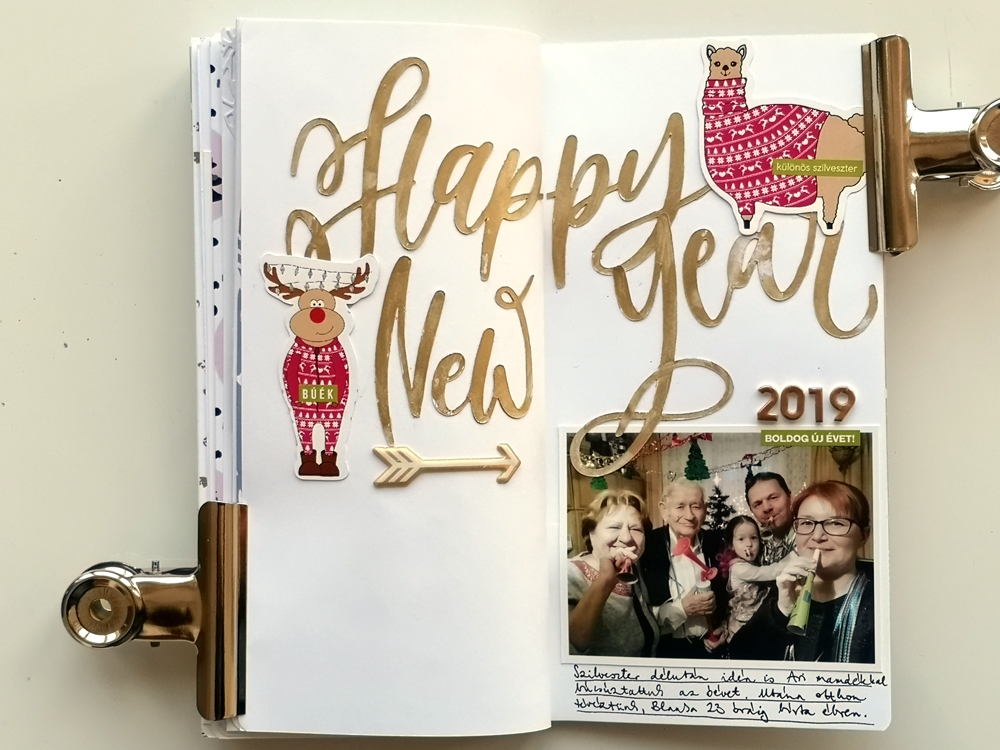 Happy
New
Year
különös szilveszter
BÚÉK
2019
BOLDOG ÚJ ÉVET!
Szilveszter délután idén is Ari mamáékkal
búcsúztattuk az óévet. Utána otthon
Blanka 23 óráig bírta ébren.